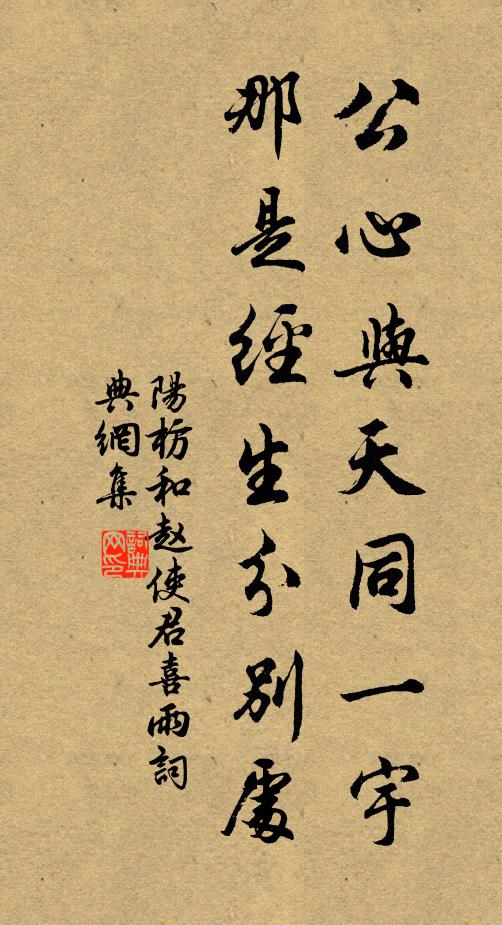 公心與天同一宇
那是經生分別處
陽枋和赵使君喜雨詞
典網集
詞典
网印